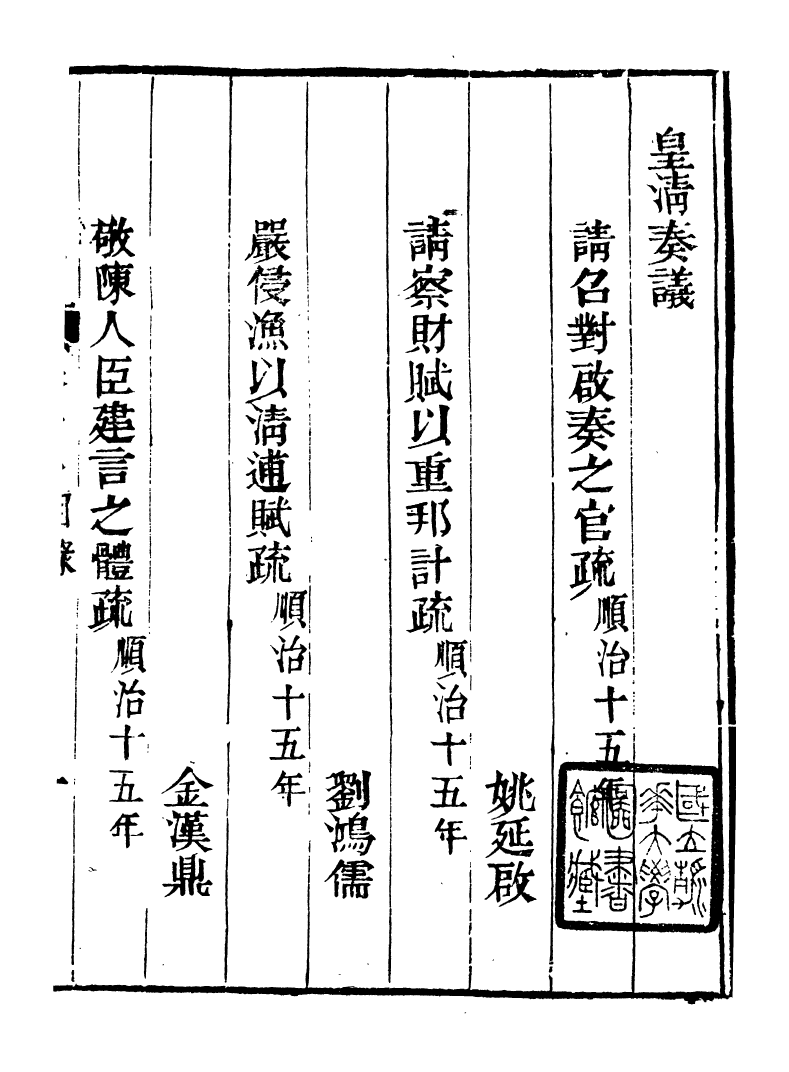 皇清奏議
請召對啟奏之官疏 順治十五年
姚延啟
請察財賦以重邦計疏 順治十五年
劉鴻儒
嚴侵漁以清逋賦疏 順治十五年
金漢鼎
敬陳人臣建言之體疏 順治十五年
目錄
一
國立
華大學
圖書
館藏